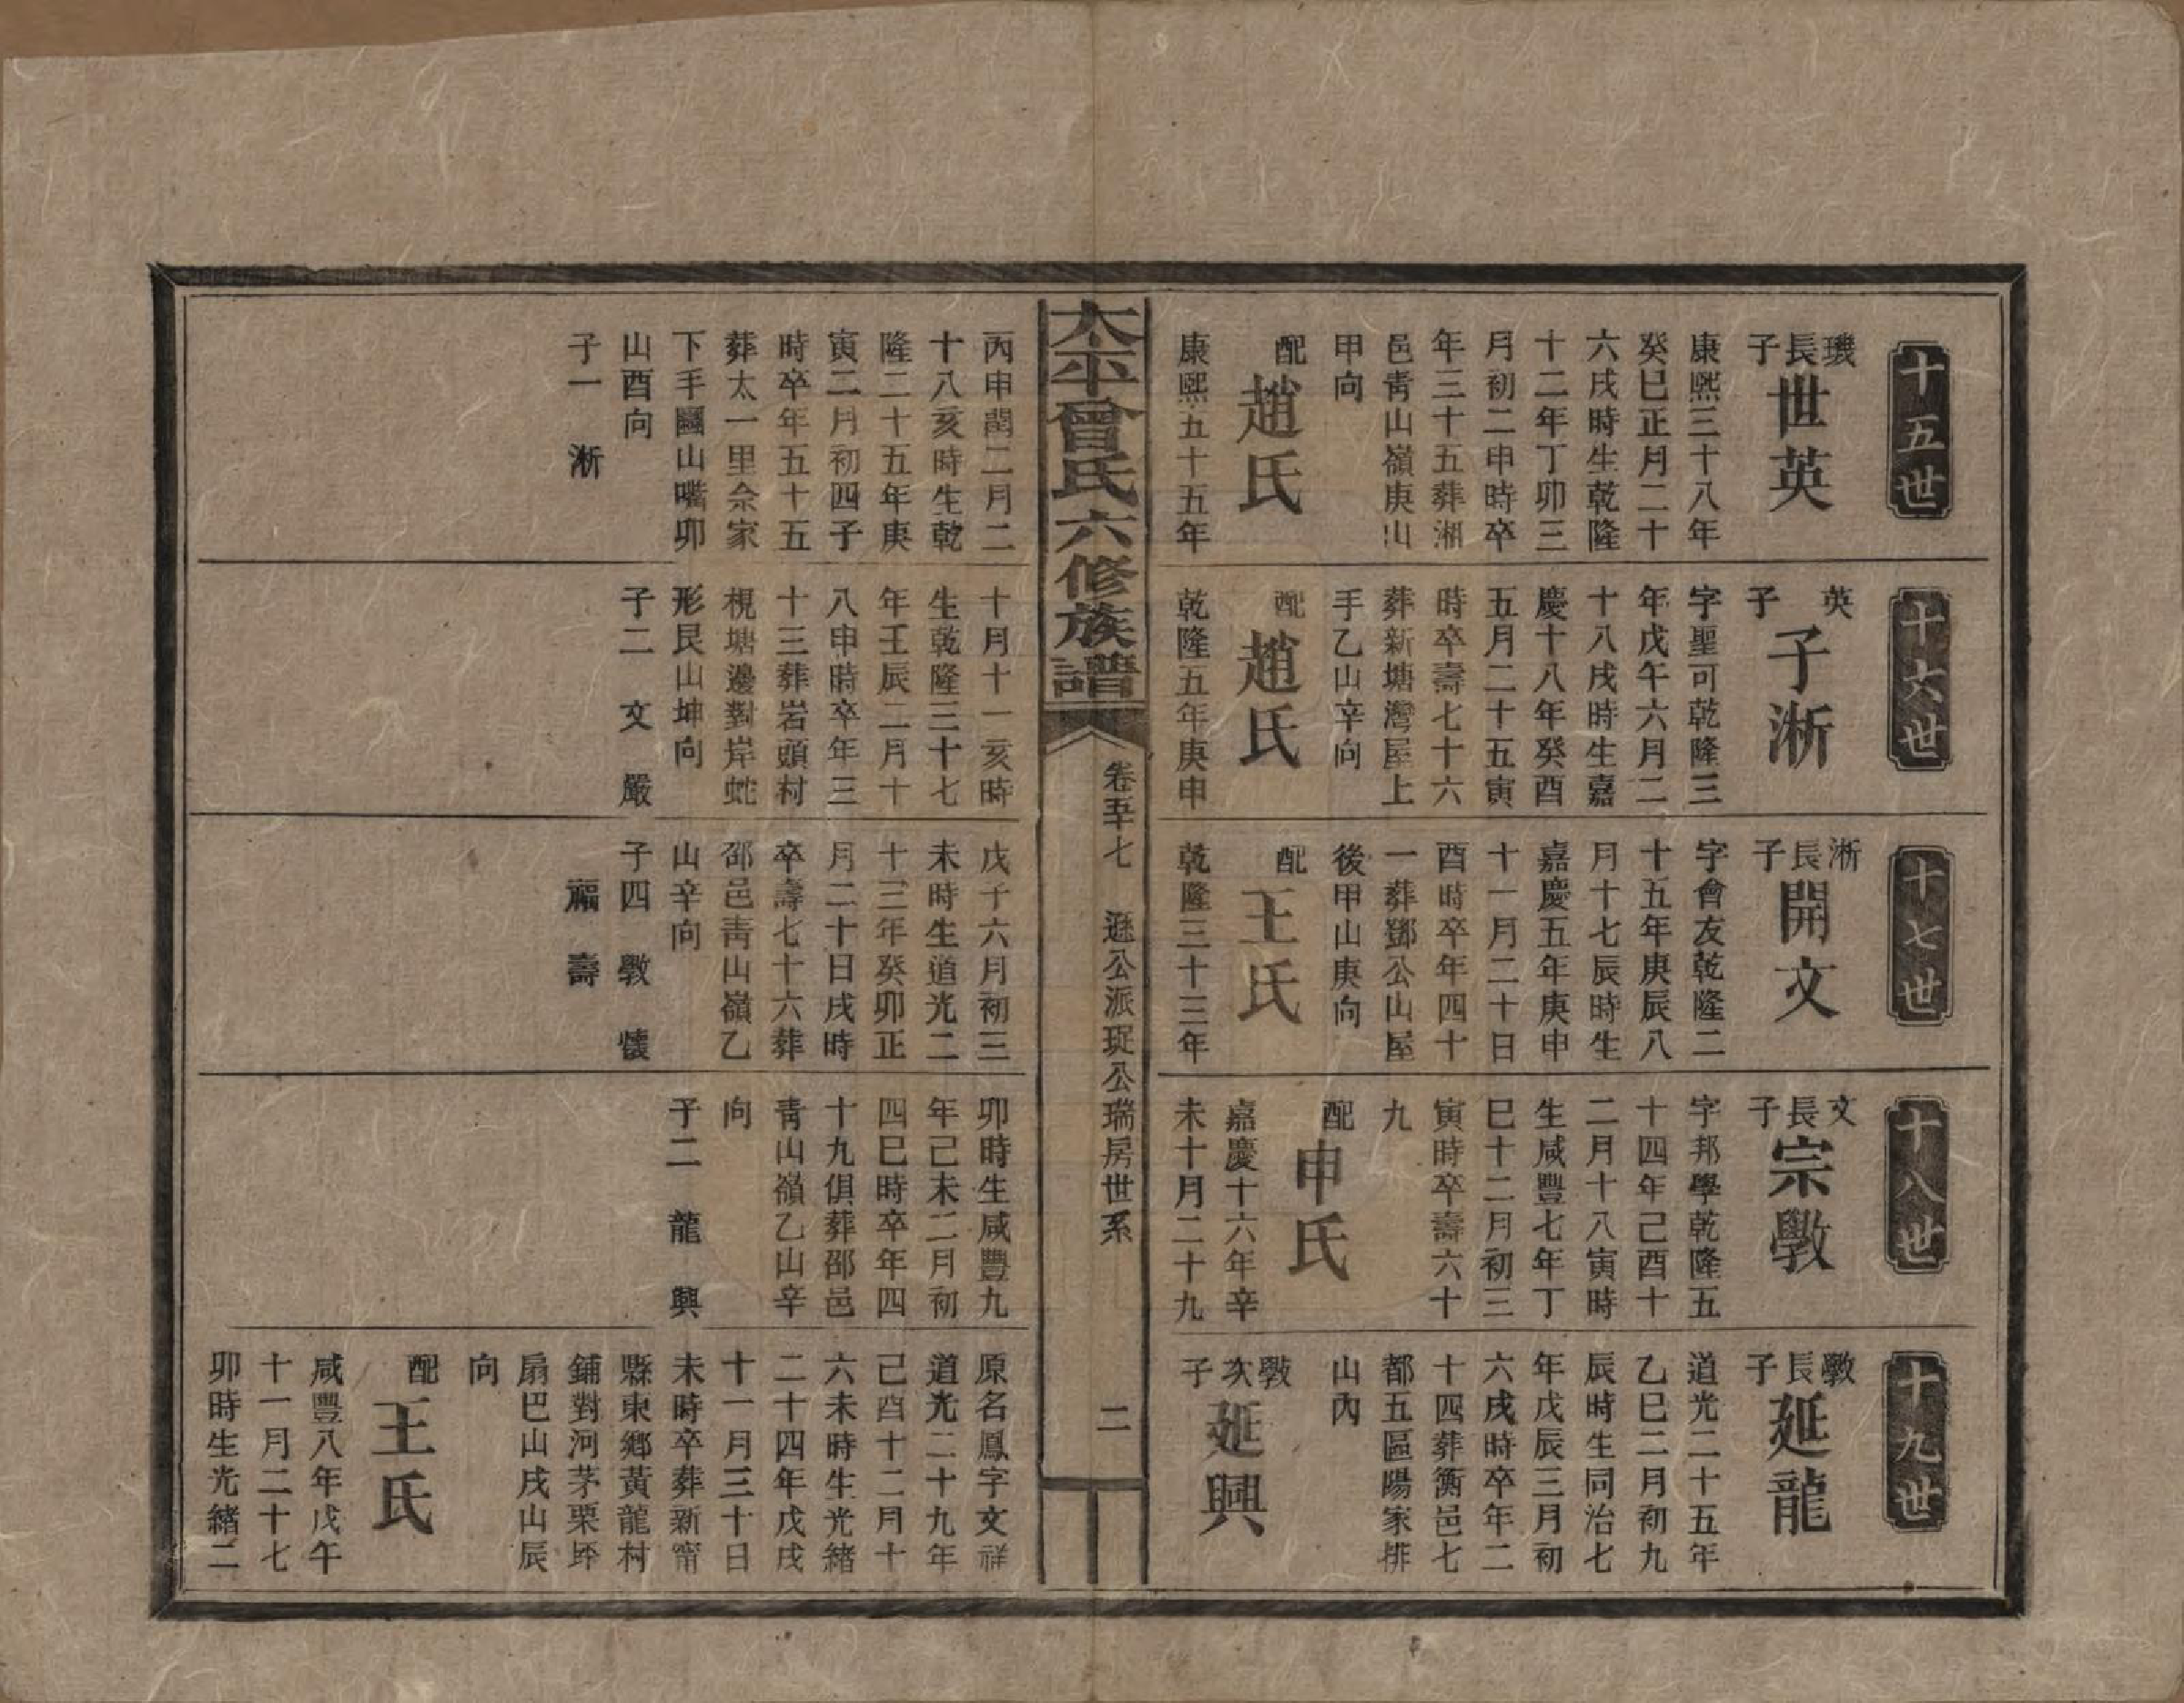 十五世
璣長子
世英
康熙三十八年
癸巳正月二十
六戌時生乾隆
十二年丁卯三
月初二申時卒
年三十五葬湘
邑靑山嶺庚山
甲向
配
趙氏
康熙五十五年
丙申閏二月二
十八亥時生乾
隆二十五年庚
寅二月初四子
時卒年五十五
葬太一里佘家
下手圞山嘴卯
山酉向
子一 淅
十六世
英子
子淅
字聖可乾隆三
年戊午六月二
十八戌時生嘉
慶十八年癸酉
五月二十五寅
時卒壽七十六
葬新塘灣屋上
手乙山辛向
配
趙氏
乾隆五年庚申
十月十一亥時
生乾隆三十七
年壬辰二月十
八申時卒年三
十三葬岩頭村
梘塘邊對岸蛇
形艮山坤向
子二 文 嚴
十七世
淅長子
開文
字會友乾隆二
十五年庚辰八
月十七辰時生
嘉慶五年庚申
十一月二十日
酉時卒年四十
一葬鄧公山屋
後甲山庚向
配
王氏
乾隆三十三年
戊子六月初三
未時生道光二
十三年癸卯正
月二十日戌時
卒壽七十六葬
邵邑靑山嶺乙
山辛向
子四 斅 懷
福 壽
十八世
文長子
宗斅
字邦學乾隆五
十四年己酉十
二月十八寅時
生咸豐七年丁
巳十二月初三
寅時卒壽六十
九
配
申氏
嘉慶十六年辛
未十月二十九
卯時生咸豐九
年己未二月初
四巳時卒年四
十九俱葬邵邑
靑山嶺乙山辛
向
子二 龍 興
十九世
斅長子
延龍
道光二十五年
乙巳二月初九
辰時生同治七
年戊辰三月初
六戌時卒年二
十四葬衡邑七
都五區陽家排
山內
斅次子
延興
原名鳳字文祥
道光二十九年
己酉十二月十
六未時生光緒
二十四年戊戌
十一月三十日
未時卒葬新甯
縣東鄉黃龍村
鋪對河茅栗坏
扇巴山戌山辰
向
配
王氏
咸豐八年戊午
十一月二十七
卯時生光緒二
太平曾氏六修族譜
卷五十七 遜公派珽公瑞房世系
二